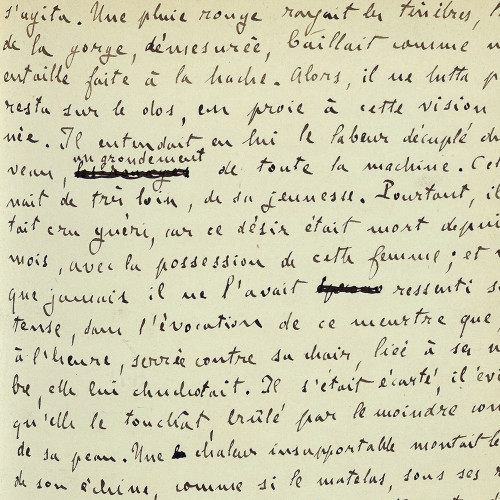 s'agita. Une pluie rouge rayait les ténèbres, l
de la gorge, démesurée, baillait comme
entaille faite à la hache. Alors, il ne lutta p
resta sur le dos, en proie à cette vision
née. Il entendait en lui le labeur décuplé du
un grondement
veau, de toute la machine. Cel
nait de très loin, de sa jeunesse. Pourtant, il
tait cru guéri, car ce désir était mort depui
mois, avec la possession de cette femme ; et
que jamais il ne l'avait ressenti
tense, dans l'évocation de ce meurtre que
à l'heure, serrée contre sa chair, liée à ses
bre, elle lui chuchotait. Il s'était écarté, il évi
qu'elle le touchât, brûlé par le moindre con
de sa peau. Une chaleur insupportable montait le
de son échine, comme si le matelas, sous ses